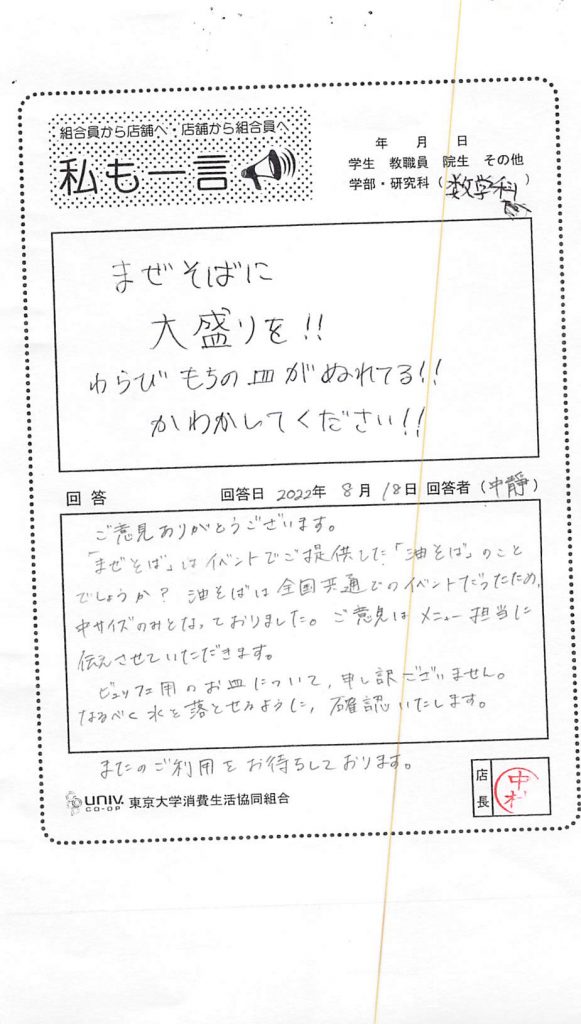 組合員から店舗へ・店舗から組合員へ
私も一言
年 月 日
学生 教職員 院生 その他
学部・研究科(数学科)
まぜそばに
大盛りを!!
わらびもちの皿がぬれてる!!
かわかしてください!!
回答 回答日 2022年 8月 18日 回答者(中静)
ご意見ありがとうございます。
「まぜそば」はイベントでご提供した「油そば」のこと
でしょうか? 油そばは全国共通でのイベントだったため、
中サイズのみとなっておりました。ご意見はメニュー担当に
伝えさせていただきます。
ビュッフェ用のお皿について、申し訳ございません。
なるべく水を落とせるように、確認いたします。
またのご利用をお待ちしております。
UNIV. CO-OP 東京大学消費生活協同組合
店長
中村